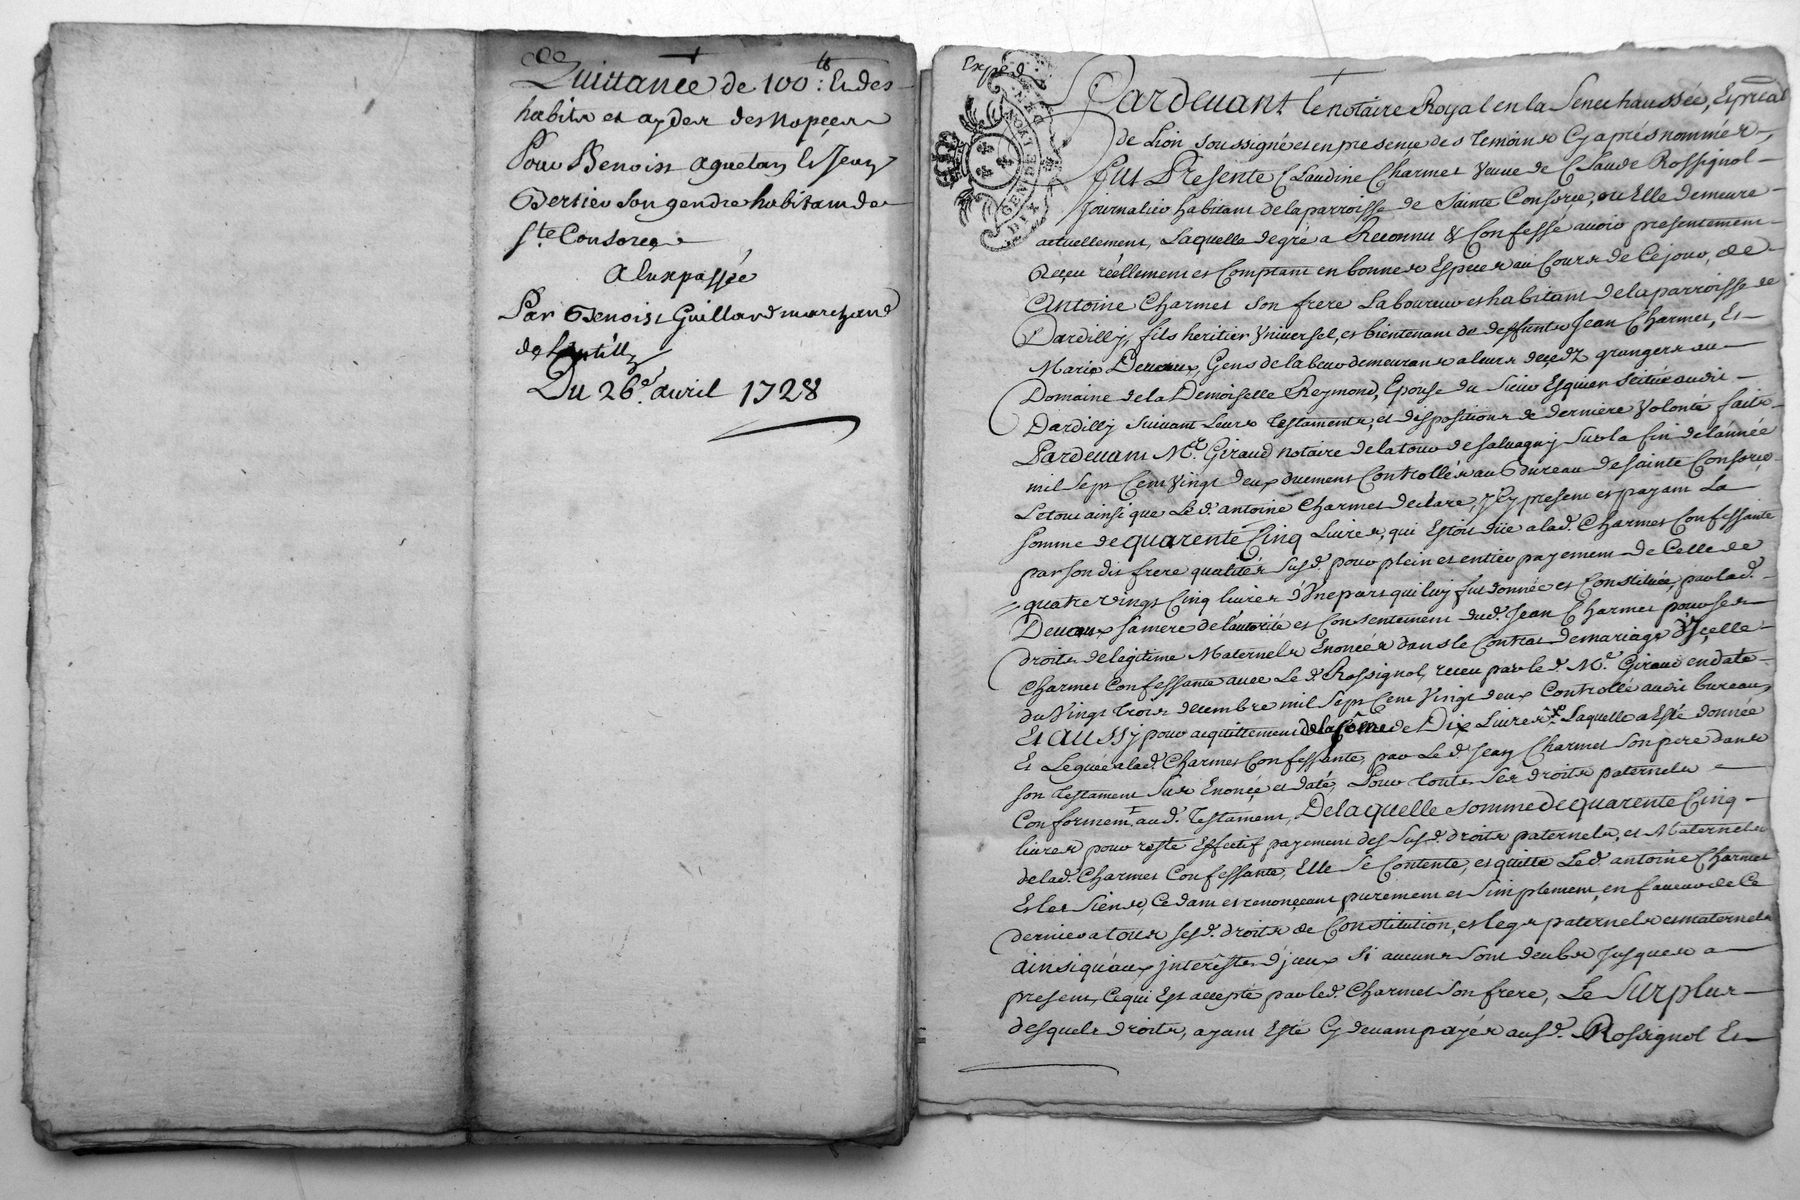 Quittance de 100 tt: Et des
habits et aydes des nopces
Pour Benoist aguetan Et Jean
Bertier son gendre habitans de
Ste Consorce
a Eux passée
Par Benoist Guillard marchand
de Lentilly
Du 26e. avril 1728
Exped
GEN DE LION
DIX
Pardevant Le notaire Royal en la Senechaussée, Et presal
de Lion soussigné et en presence des temoins Cy aprés nommes,
fut Presente Claudine Charmet veuve de Claude Rossignol
Journalier habitant de la parroisse de Sainte Consorce, ou Elle demeure
actuellement, Laquelle de gré a Reconnu & Confessé avoir presentement
Reçeu réellement et Comptant en bonnes Especes au Cours de Ce jour, de
Antoine Charmet son frere Laboureur et habitant de la parroisse de
Dardilly, fils heritier Universel, et bientenant de deffunts Jean Charmet, Et
Marie Devaux, Gens de labeur demeurans a leurs decedz grangers au
Domaine de la Demoiselle Reymond, Epouse du Sieur Esquier scitué audit
Dardilly suivant Leurs testaments, et dispositions de derniere volonté faits
Pardevant Mr. Giraud notaire de la tour de salvagny sur la fin de l'année
mil sept Cent vingt deux duement Controllés au Bureau de sainte Consorce
Le tout ainsi que Led. antoine Charmet declare, Icy present et payant La
somme de quarente Cinq Livres, qui Estoit düe a lad. Charmet Confessante
par son dit frere qualités susd. pour plein et entier payement de Celle de
quatre vings Cinq livres d'Une part qui luy fut donnée et Constituée, par lad.
Devaux sa mere de l'autorité et Consentement dud. Jean Charmet pour ses
droits de legitime Maternels Enoncés dans le Contrat de mariage d'Icelle
Charmet Confessante avec Le d. Rossignol, receu par le d. Me. Giraud en date
du Vingt trois decembre mil sept Cent Vingt deux Controllé audit bureau,
Et AUSSy pour acquittement de la some de Dix Livres Laquelle a Esté donnée
Et Leguée a lad. Charmet Confessante par Le d. Jean Charmet son pere dans
son testament sus Enoncé et daté, Pour toutes ses droits paternels
Conformemt. aud. testament, De laquelle somme de quarente Cinq
livres pour reste Effectif payement des susd. droits paternels, et Maternels
de lad. Charmet Confessante, Elle se Contente, et quitte Led. antoine Charmet
Et les siens, Cedant et renonçant purement et simplement, en faveur de Ce
dernier a tous sesd. droits de Constitution, et legs paternels et maternels
ainsi qu'aux interêsts d'jceux si aucuns sont deubs jusques a
present, Ce qui Est accepté par led. Charmet son frere, Le surplus
desquels droits, ayant Esté Cy devant payés ausd. Rossignol Et